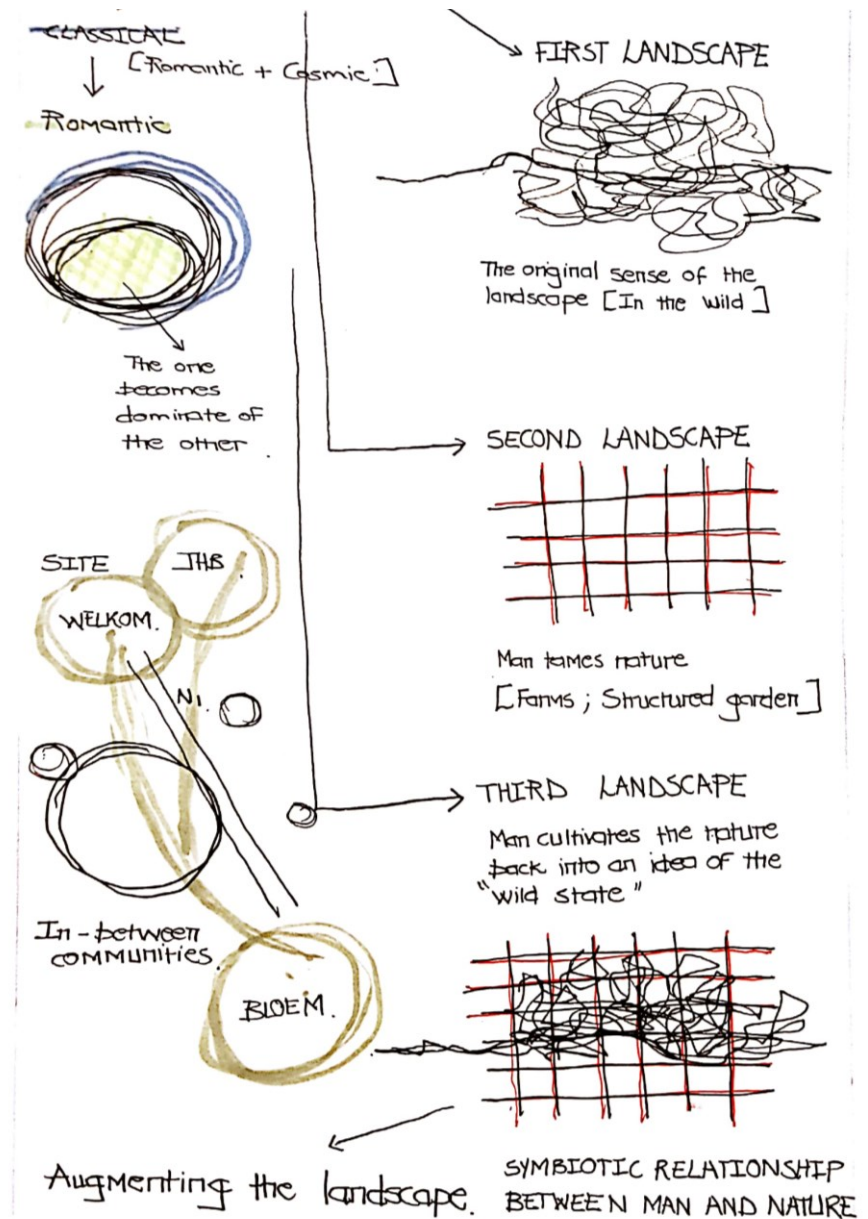 CLASSICAL
[Romantic + Cosmic]
Romantic
The one
becomes
dominate of
the other.
SITE
JHB
WELKOM.
N1.
In-between
communities.
BLOEM.
FIRST LANDSCAPE
The original sense of the
landscape [In the wild]
SECOND LANDSCAPE
Man tames nature
[Farms; Structured garden]
THIRD LANDSCAPE
Man cultivates the nature
back into an idea of the
"wild state"
SYMBIOTIC RELATIONSHIP
BETWEEN MAN AND NATURE
Augmenting the landscape.